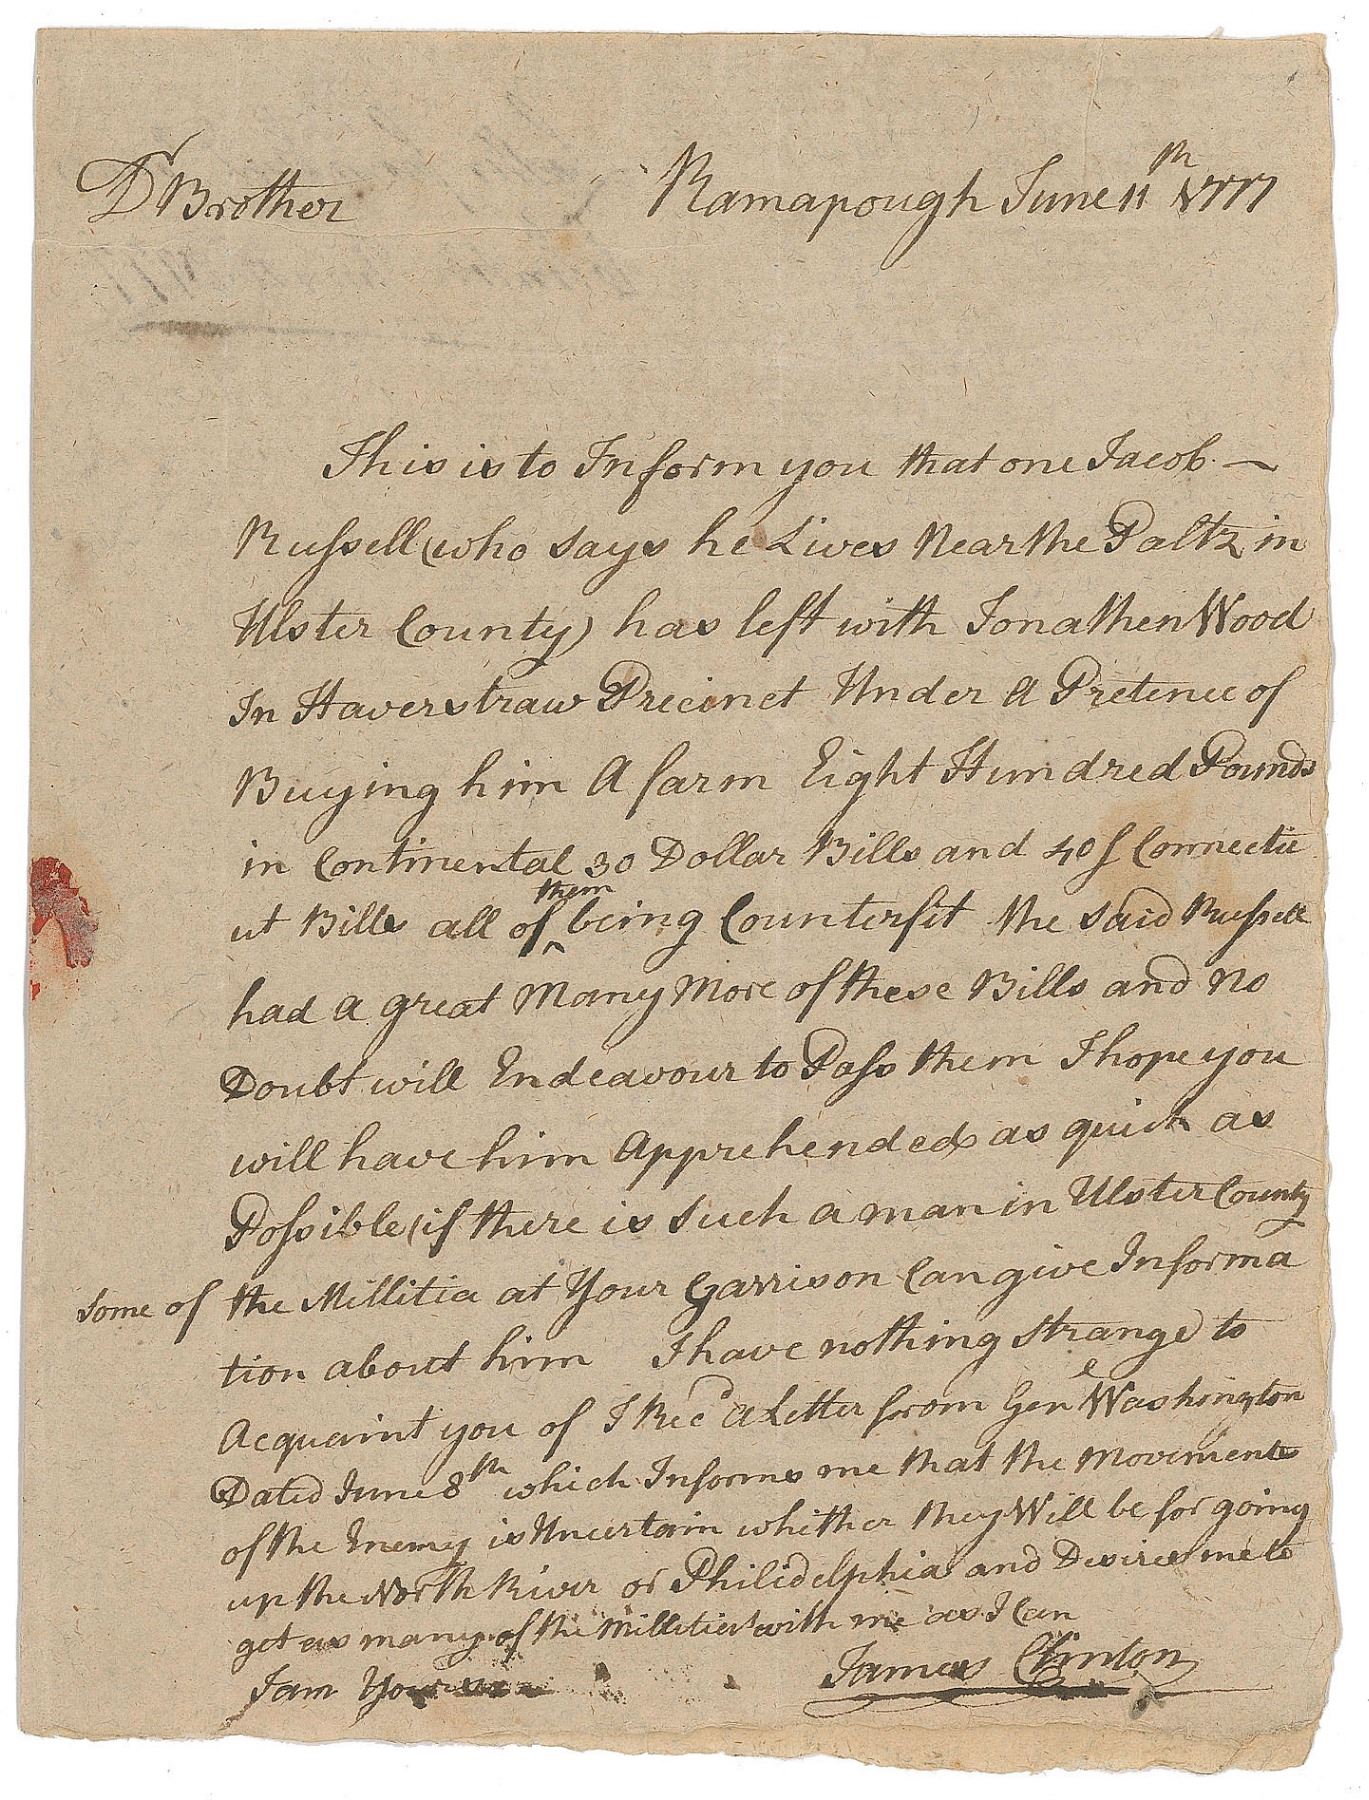 D Brother
Ramapough June 11th 1777
This is to Inform you that one Jacob —
Russell (who says he Lives Near the Paltz in
Ulster County) has left with Jonathen Wood
In Haverstraw Precinct Under A Pretence of
Buying him A farm Eight Hundred Pounds
in Continental 30 Dollar Bills and 40s Connectic
ut Bills all of them being Counterfit the said Russell
had a great Many More of these Bills and No
Doubt will Endeavour to Pass them I hope you
will have him Apprehended as quick as
Possible (if there is such a man in Ulster County
some of the Millitia at Your Garrison Can give Informa
tion about him I have nothing strange to
Acquaint you of I Recd a Letter from Genl Washington
Dated June 8th which Informs me that the Movements
of the Enemy is Uncertain whither they Will be for going
up the North River or Philidelphia and Desires me to
get as many of the Millitia with me as I Can
I am Yours
James Clinton